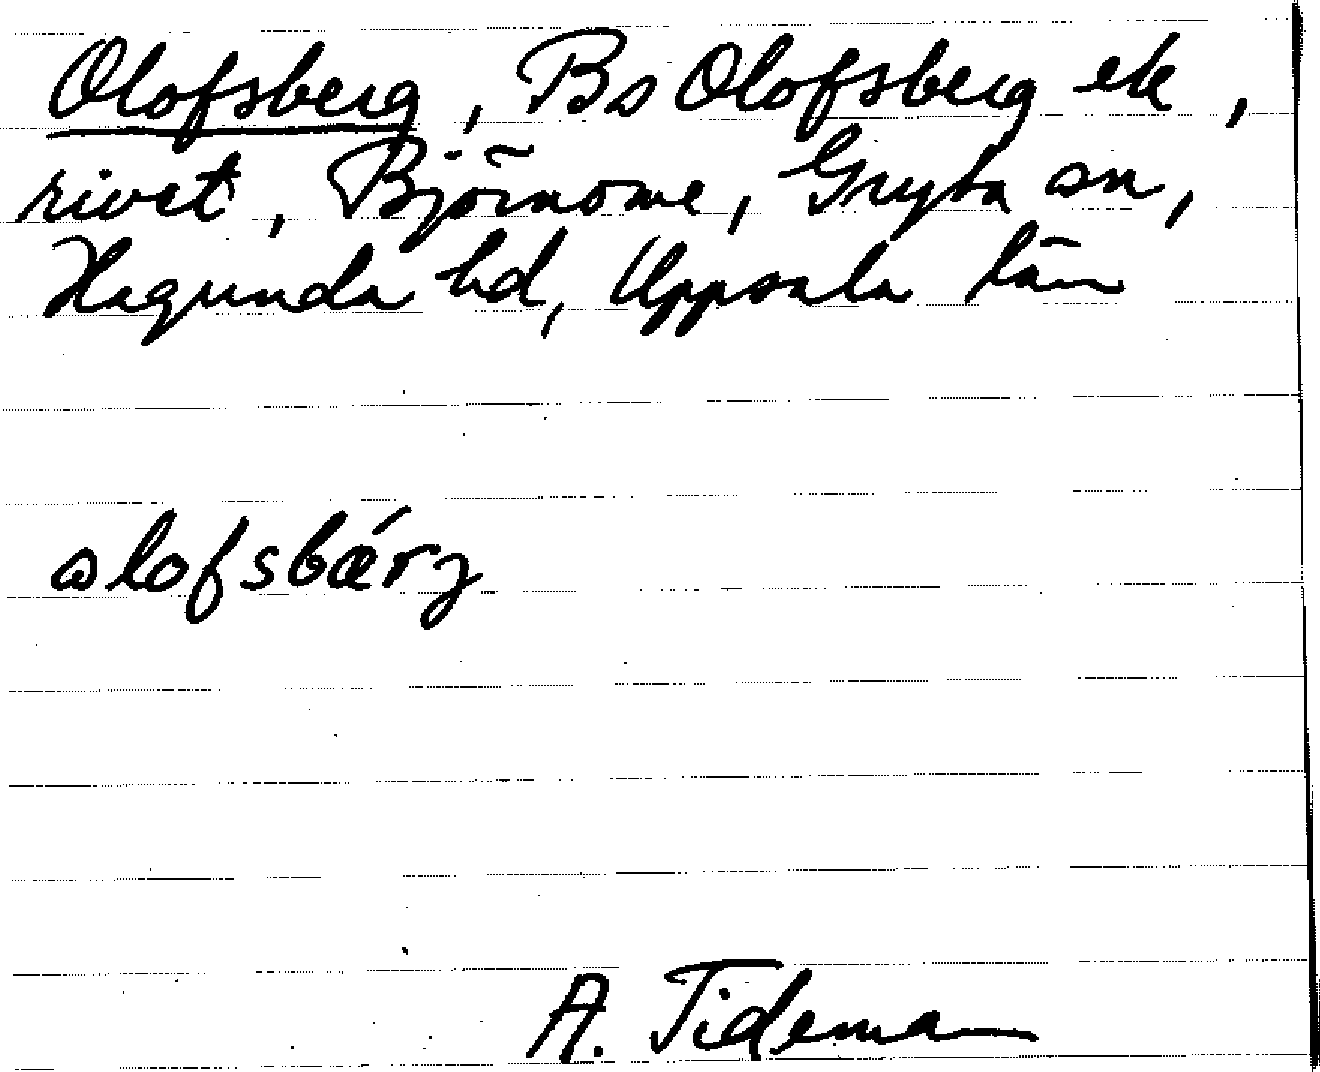 Olofsberg, Bs Olofsberg ek,
rivet, Björnome, Gryta sn,
Hagunda hd, Uppsala län
olofsbǽrȝ
A. Tideman